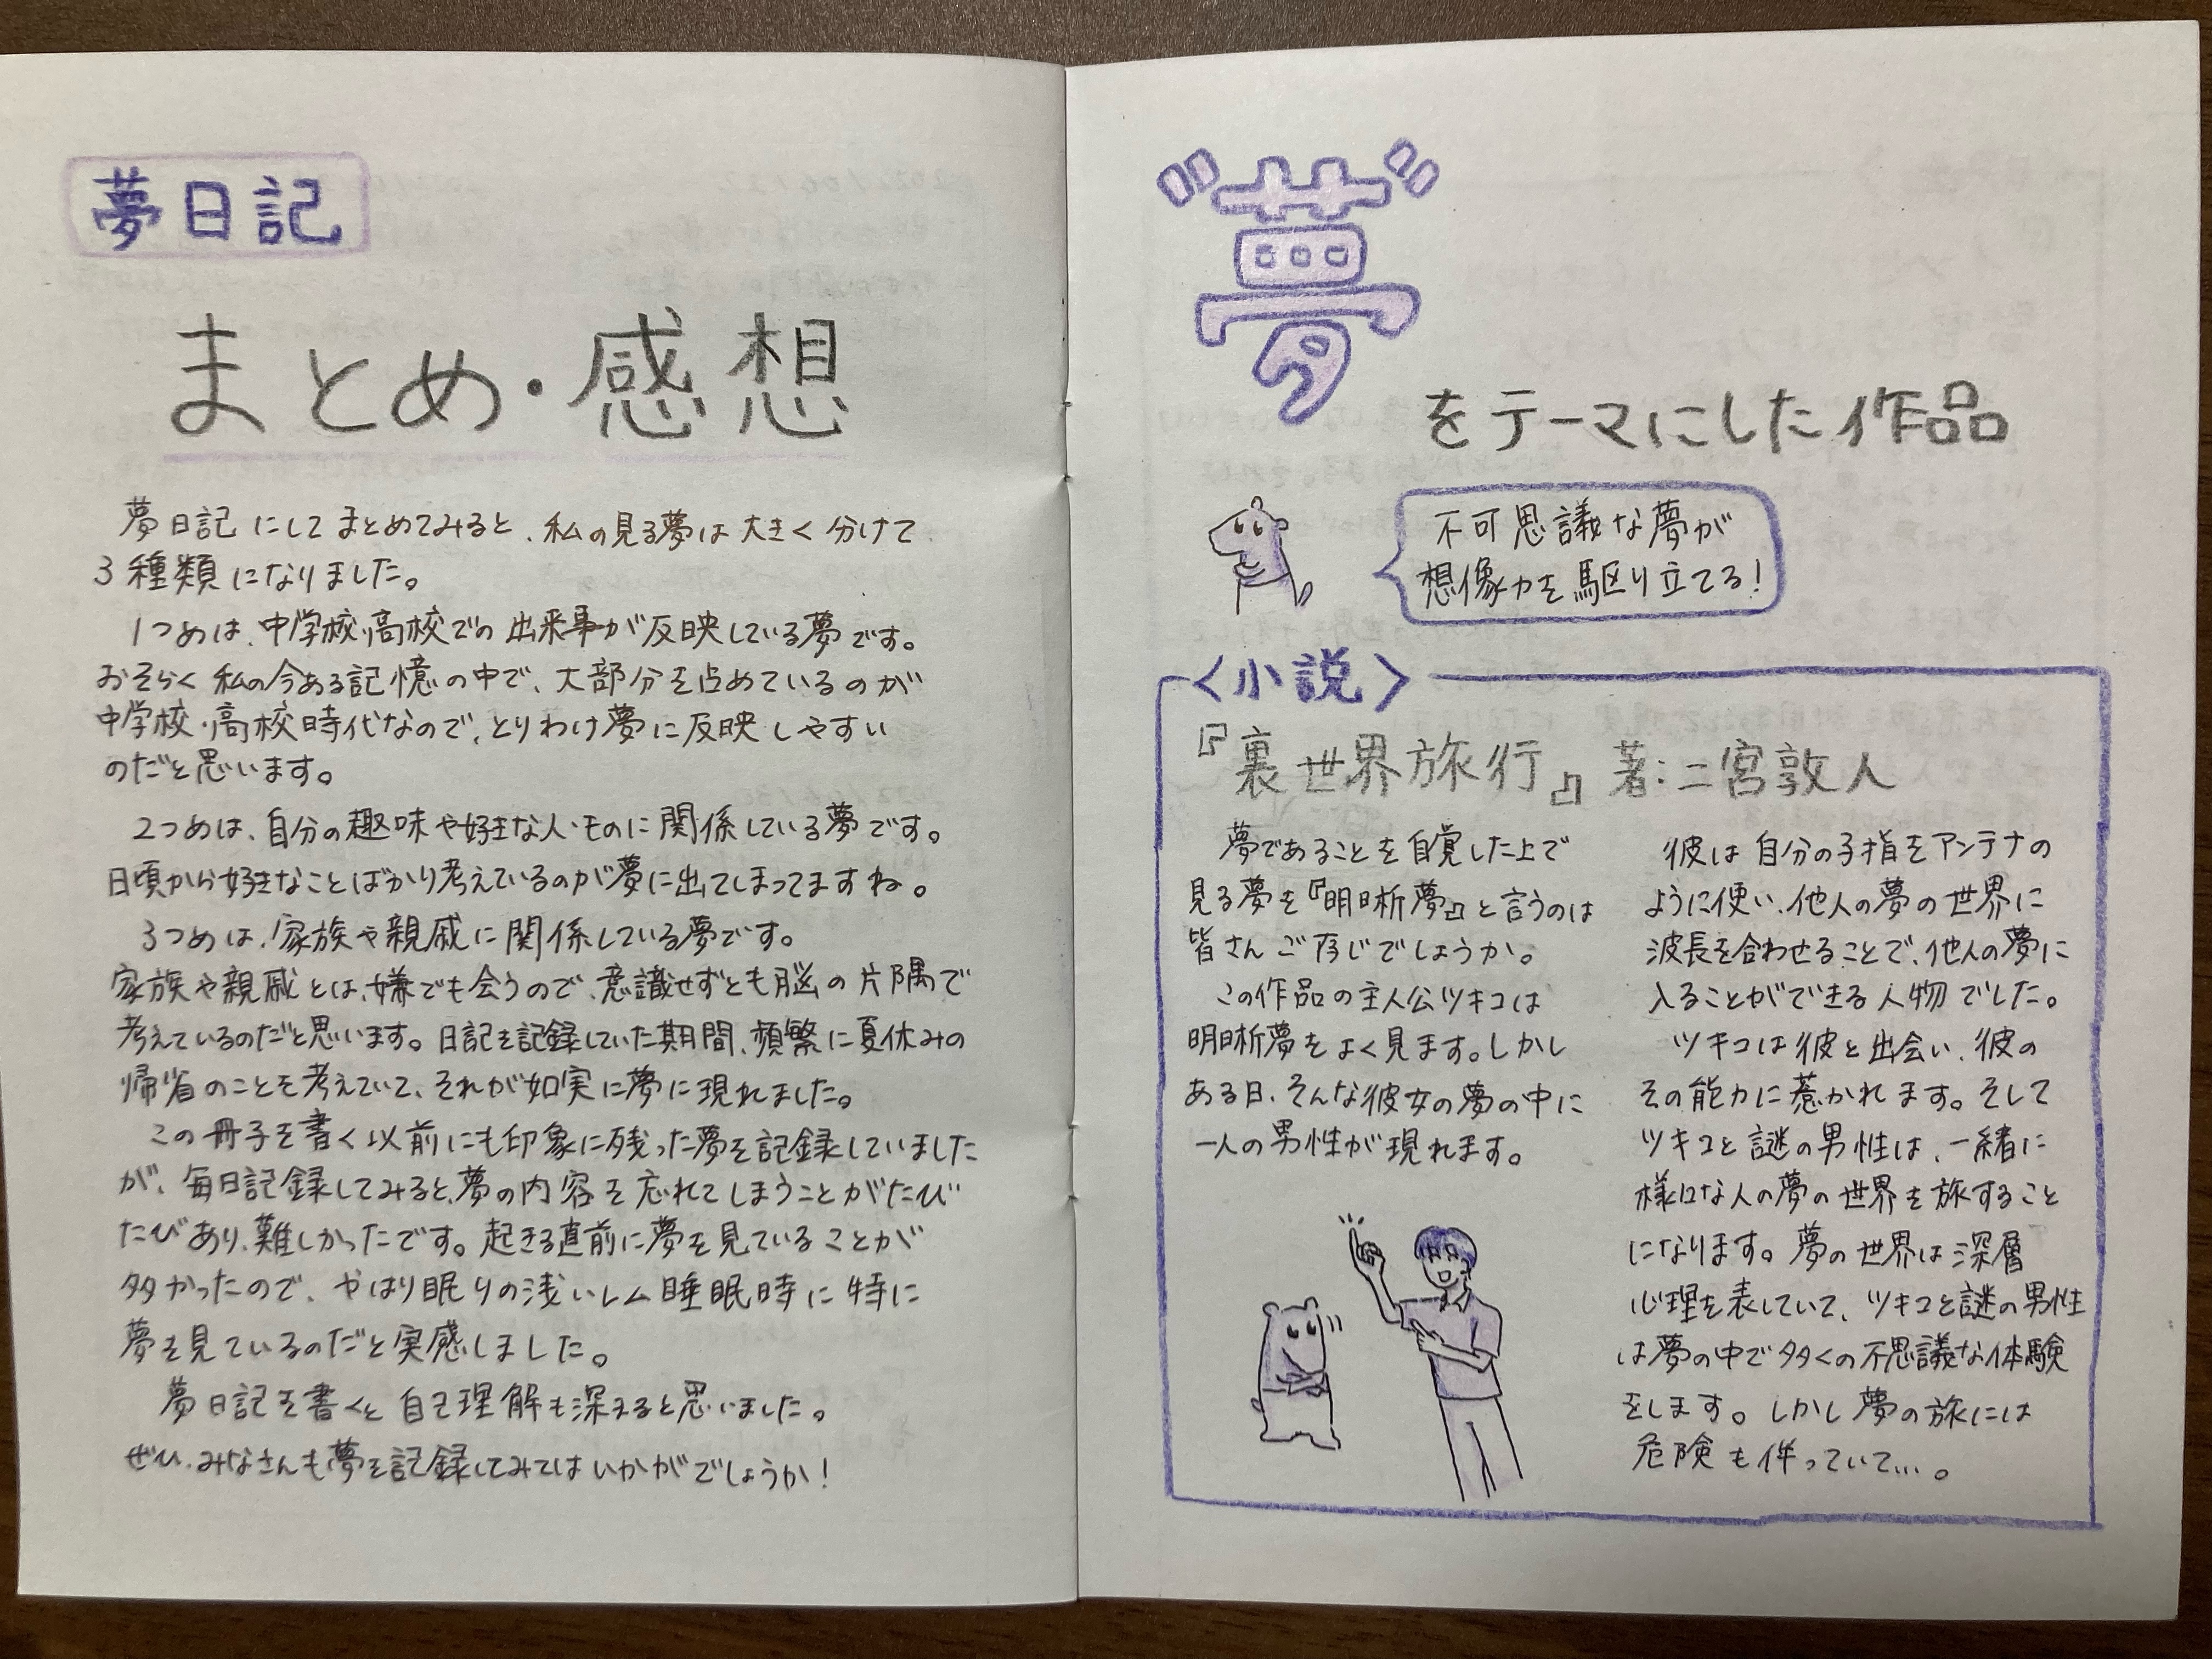 夢日記
まとめ・感想
夢日記にしてまとめてみると、私の見る夢は大きく分けて
3種類になりました。
1つめは、中学校・高校での出来事が反映している夢です。
おそらく私の今ある記憶の中で、大部分を占めているのが
中学校・高校時代なので、とりわけ夢に反映しやすい
のだと思います。
2つめは、自分の趣味や好きな人・ものに関係している夢です。
日頃から好きなことばかり考えているのが夢に出てしまってますね。
3つめは、家族や親戚に関係している夢です。
家族や親戚とは、嫌でも会うので、意識せずとも脳の片隅で
考えているのだと思います。日記を記録していた期間、頻繁に夏休みの
帰省のことを考えていて、それが如実に夢に現れました。
この冊子を書く以前にも印象に残った夢を記録していました
が、毎日記録してみると、夢の内容を忘れてしまうことがたび
たびあり、難しかったです。起きる直前に夢を見ていることが
多かったので、やはり眠りの浅いレム睡眠時に特に
夢を見ているのだと実感しました。
夢日記を書くと自己理解も深まると思いました。
ぜひ、みなさんも夢を記録してみてはいかがでしょうか！
"夢"
をテーマにした作品
不可思議な夢が
想像力を駆り立てる！
〈小説〉
『裏世界旅行』著：二宮敦人
夢であることを自覚した上で
見る夢を『明晰夢』と言うのは
皆さんご存じでしょうか。
この作品の主人公ツキコは
明晰夢をよく見ます。しかし
ある日、そんな彼女の夢の中に
一人の男性が現れます。
彼は自分の手指をアンテナの
ように使い、他人の夢の世界に
波長を合わせることで、他人の夢に
入ることができる人物でした。
ツキコは彼と出会い、彼の
その能力に惹かれます。そして
ツキコと謎の男性は、一緒に
様々な人の夢の世界を旅すること
になります。夢の世界は深層
心理を表していて、ツキコと謎の男性
は夢の中で多くの不思議な体験
をします。しかし夢の旅には
危険も伴っていて…。